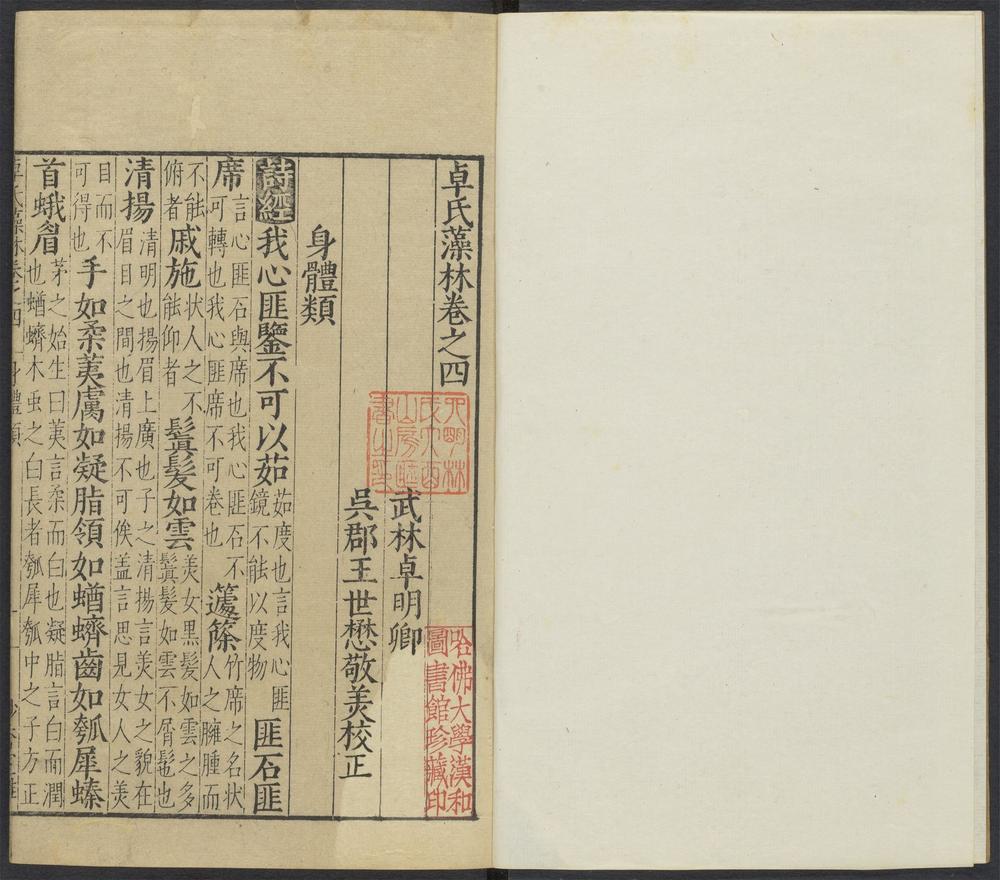 卓氏藻林卷之四
武林卓明卿
吳郡王世懋敬美校正
身體類
詩經 我心匪鑒不可以茹 茹度也言我心匪鏡不能以度物 匪石匪
席 言心匪石與席也我心匪石不可轉也我心匪席不可卷也 籧篨 竹席之名狀人之臃腫而
不能俯者 戚施 狀人之不能仰者 鬒髮如雲 美女黑髮如雲之多鬒髮如雲不屑髢也
清揚 清明也揚眉上廣也子之清揚言美女之貌在眉目之間也清揚不可俟盖言思見女人之美
目而不可得也 手如柔荑膚如凝脂領如蝤蠐齒如瓠犀螓
首蛾眉 茅之始生曰荑言柔而白也凝脂言白而潤也蝤蠐木虫之白長者瓠犀瓠中之子方正
卓氏藻林卷之四 身體類
哈佛大學漢和
圖書館珍藏印